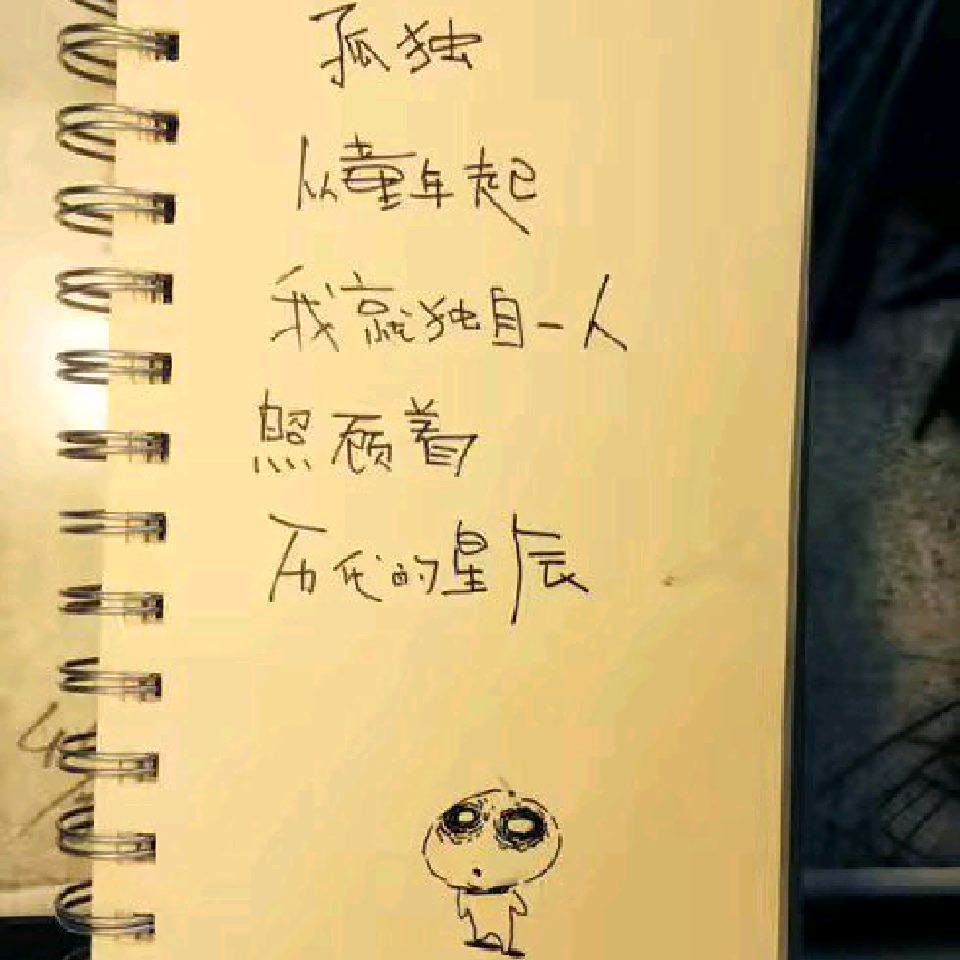 孤独
从童年起
我就独自一人
照顾着
历代的星辰